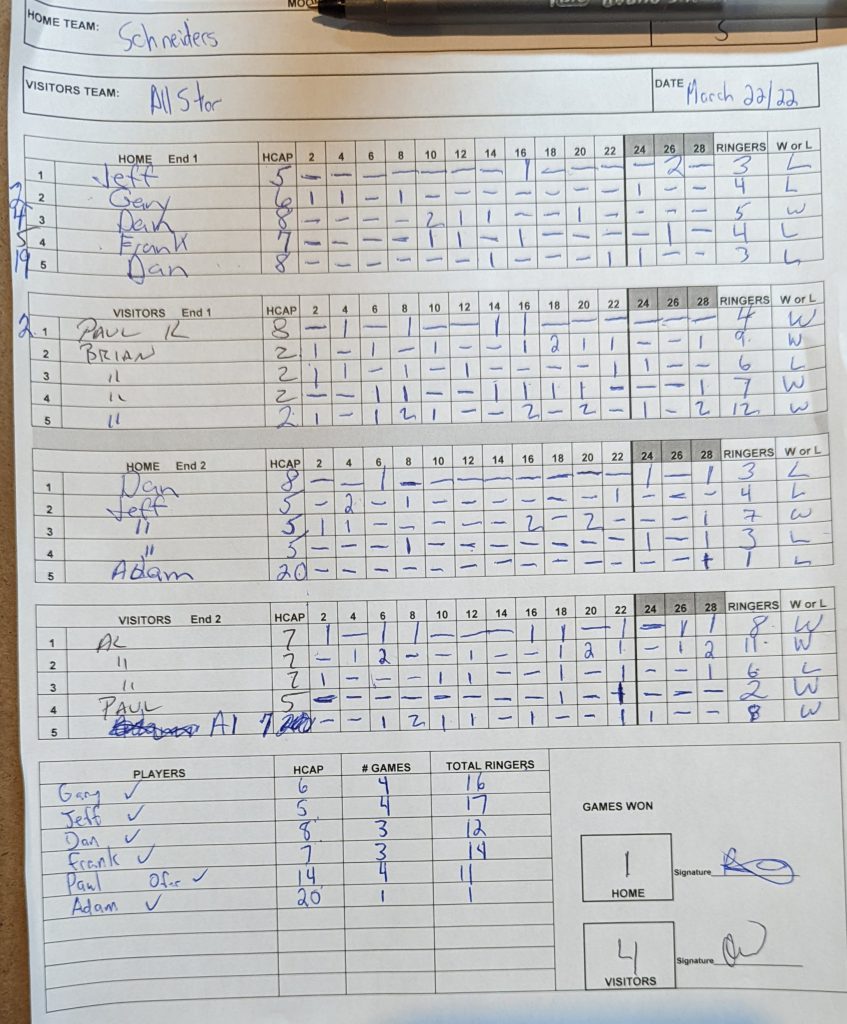 HOME TEAM: Schneiders 5
VISITORS TEAM: All Star DATE March 22/22
HOME End 1 HCAP 2 4 6 8 10 12 14 16 18 20 22 24 26 28 RINGERS W or L
1 Jeff 5 - - - - - - - 1 - - - - 2 - 3 L
2 Gary 6 1 1 - 1 - - - - - - - 1 - - 4 L
3 Dan 8 - - - - 2 1 1 - - 1 - - - - 5 W
4 Frank 7 - - - - 1 1 - 1 - - - - 1 - 4 L
5 Dan 8 - - - - - - 1 - - - 1 1 - - 3 L
VISITORS End 1 HCAP 2 4 6 8 10 12 14 16 18 20 22 24 26 28 RINGERS W or L
1 PAUL K 8 - 1 - 1 - - 1 1 - - - - - - 4 W
2 BRIAN 2 1 - 1 - 1 - - 1 2 1 1 - - 1 9 W
3 " 2 1 1 - 1 - 1 - - - - 1 1 - - 6 L
4 " 2 - - 1 1 - - 1 1 1 1 - - - 1 7 W
5 " 2 1 - 1 2 1 - - 2 - 2 - 1 - 2 12 W
HOME End 2 HCAP 2 4 6 8 10 12 14 16 18 20 22 24 26 28 RINGERS W or L
1 Dan 8 - - 1 - - - - - - - - 1 - 1 3 L
2 Jeff 5 - 2 - 1 - - - - - - 1 - - - 4 L
3 " 5 1 1 - - - - - 2 - 2 - - - 1 7 W
4 " 5 - - - 1 - - - - - - - 1 - 1 3 L
5 Adam 20 - - - - - - - - - - - - - 1 L
VISITORS End 2 HCAP 2 4 6 8 10 12 14 16 18 20 22 24 26 28 RINGERS W or L
1 AL 7 1 - 1 1 - - - 1 1 - 1 - 1 1 8 W
2 " 7 - 1 2 - - 1 - - 1 2 1 - 1 2 11 W
3 " 7 1 - - - 1 1 - - 1 - 1 - - 1 6 L
4 PAUL 5 - - - - - - - - 1 - 1 - - - 2 W
5 Al 7 - - 1 2 1 1 - 1 - - 1 1 - - 8 W
PLAYERS HCAP # GAMES TOTAL RINGERS
Gary ✓ 6 4 16
Jeff ✓ 5 4 17
Dan ✓ 8 3 12
Frank ✓ 7 3 14
Paul ✓ 14 4 11
Adam ✓ 20 1 1
GAMES WON
1 Signature
HOME
4 Signature
VISITORS